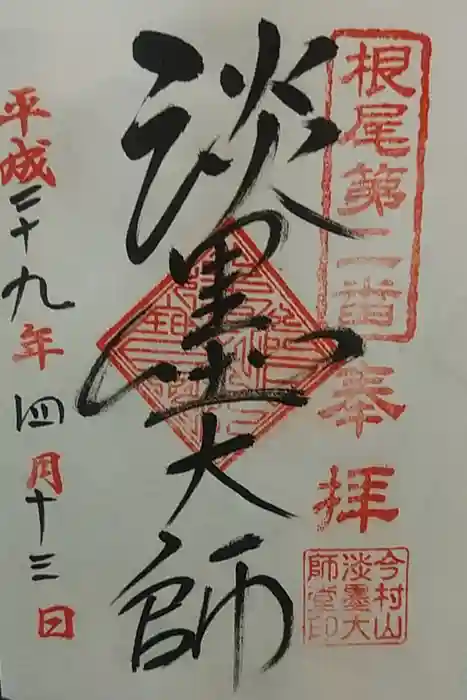 根尾第二番
奉拝
今村山
淡墨大
師堂印
淡墨大師
平成二十九年四月十三日